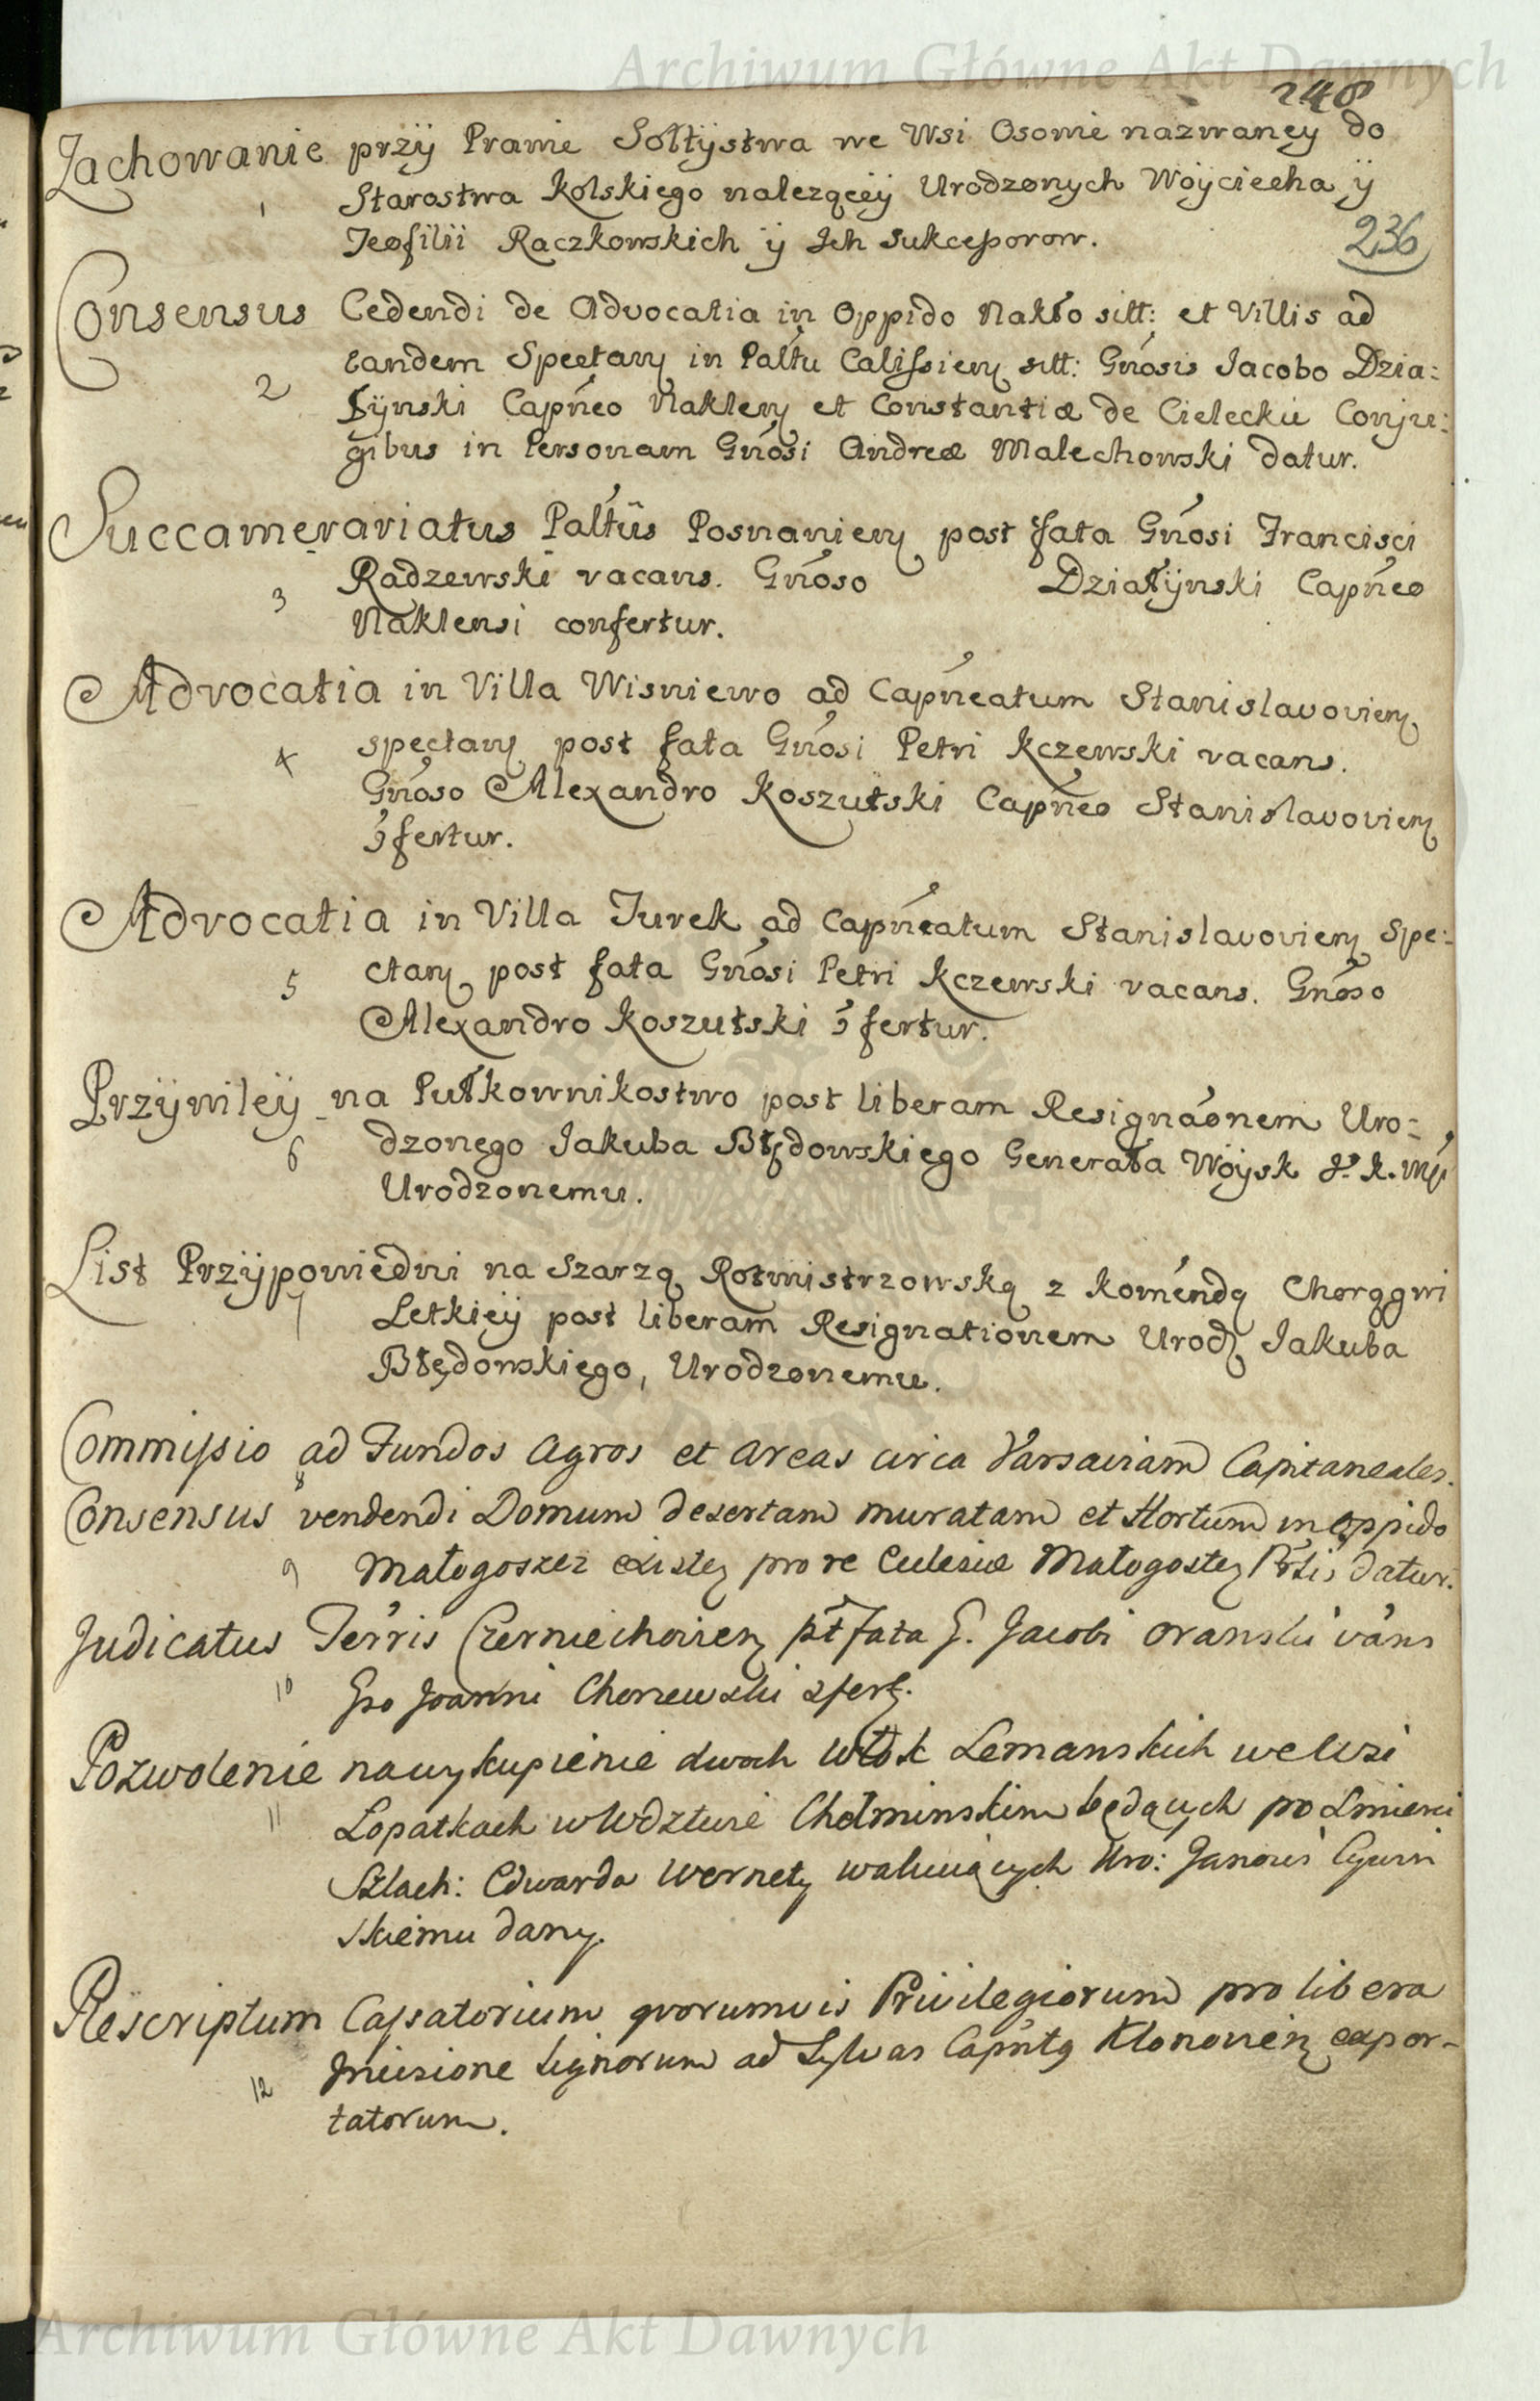 Archiwum Główne Akt Dawnych
248
Zachowanie przÿ Prawie Sołtÿstwa we Wsi Osowie nazwaneÿ do
1 Starostwa Kolskiego nalezącëÿ Urodzonych Woyciecha ÿ
Teofilii Raczkowskich ÿ Jch Sukcessorow.
236
Consensus Cedendi de Advocatia in Oppido Nakło sitt: et Villis ad
eandem Spectanȝ in Paltu Calissienȝ sitt: Gnosis Jacobo Dzia:
2 łÿnski Capneo Naklenȝ et Constantiæ de Cieleckie Conju:
gibus in Personam Gnosi Andreæ Malechowski datur.
Succamerariatus Paltûs Posnanienȝ post fata Gnosi Francisci
Radzewski vacans. Gnoso Działÿnski Capneo
3 Naklensi confertur.
Advocatia in Villa Wisniewo ad Capneatum Stanislavovienȝ
4 spectanȝ post fata Gnosi Petri Kczewski vacans.
Gnoso Alexandro Koszutski Capneo Stanislavovienȝ
ꝯfertur.
Advocatia in Villa Turek ad Capneatum Stanislavovienȝ Spe:
5 ctanȝ post fata Gnosi Petri Kczewski vacans. Gnoso
Alexandro Koszutski ꝯfertur.
Przÿwileÿ na Pułkownikostwo post liberam Resignaonem Uro:
6 dzonego Jakuba Błędowskiego Generała Woÿsk J. K. Mci
Urodzonemu.
List Przÿpowiedni na Szarzą Rotmistrzowską z komendą Chorągwi
7 Letkieÿ post liberam Resignationem Urodȝ Jakuba
Błędowskiego, Urodzonemu.
Commissio ad Fundos Agros et Areas circa Varsaviam Capitaneales.
8
Consensus vendendi Domum desertam muratam et Hortum in Oppido
9 Małogoszcz existenȝ pro re Eclesiæ Małogostenȝ datur.
Judicatus Terris Czerniechovienȝ pt fata G. Jacobi Oranski vans
10 Gso Joanni Chorewski ꝯfert.
Pozwolenie na wykupienie dwoch Włok Lemanskich we Wsi
11 Lopatkach w Wdztwie Chełminskim będących po Smierci
Szlach: Edwarda Wernety wakuiących Uro: Janowi Cywin
skiemu dany.
Rescriptum Cassatorium qvorumvis Privilegiorum pro libera
Jncisione lignorum ad Sylvas Klonovienȝ expor-
12 tatorum.
Archiwum Główne Akt Dawnych